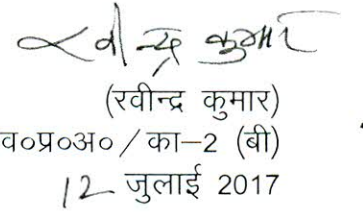 रवीन्द्र कुमार
(रवीन्द्र कुमार)
व०प्र०अ० / का–2 (बी)
12 जुलाई 2017